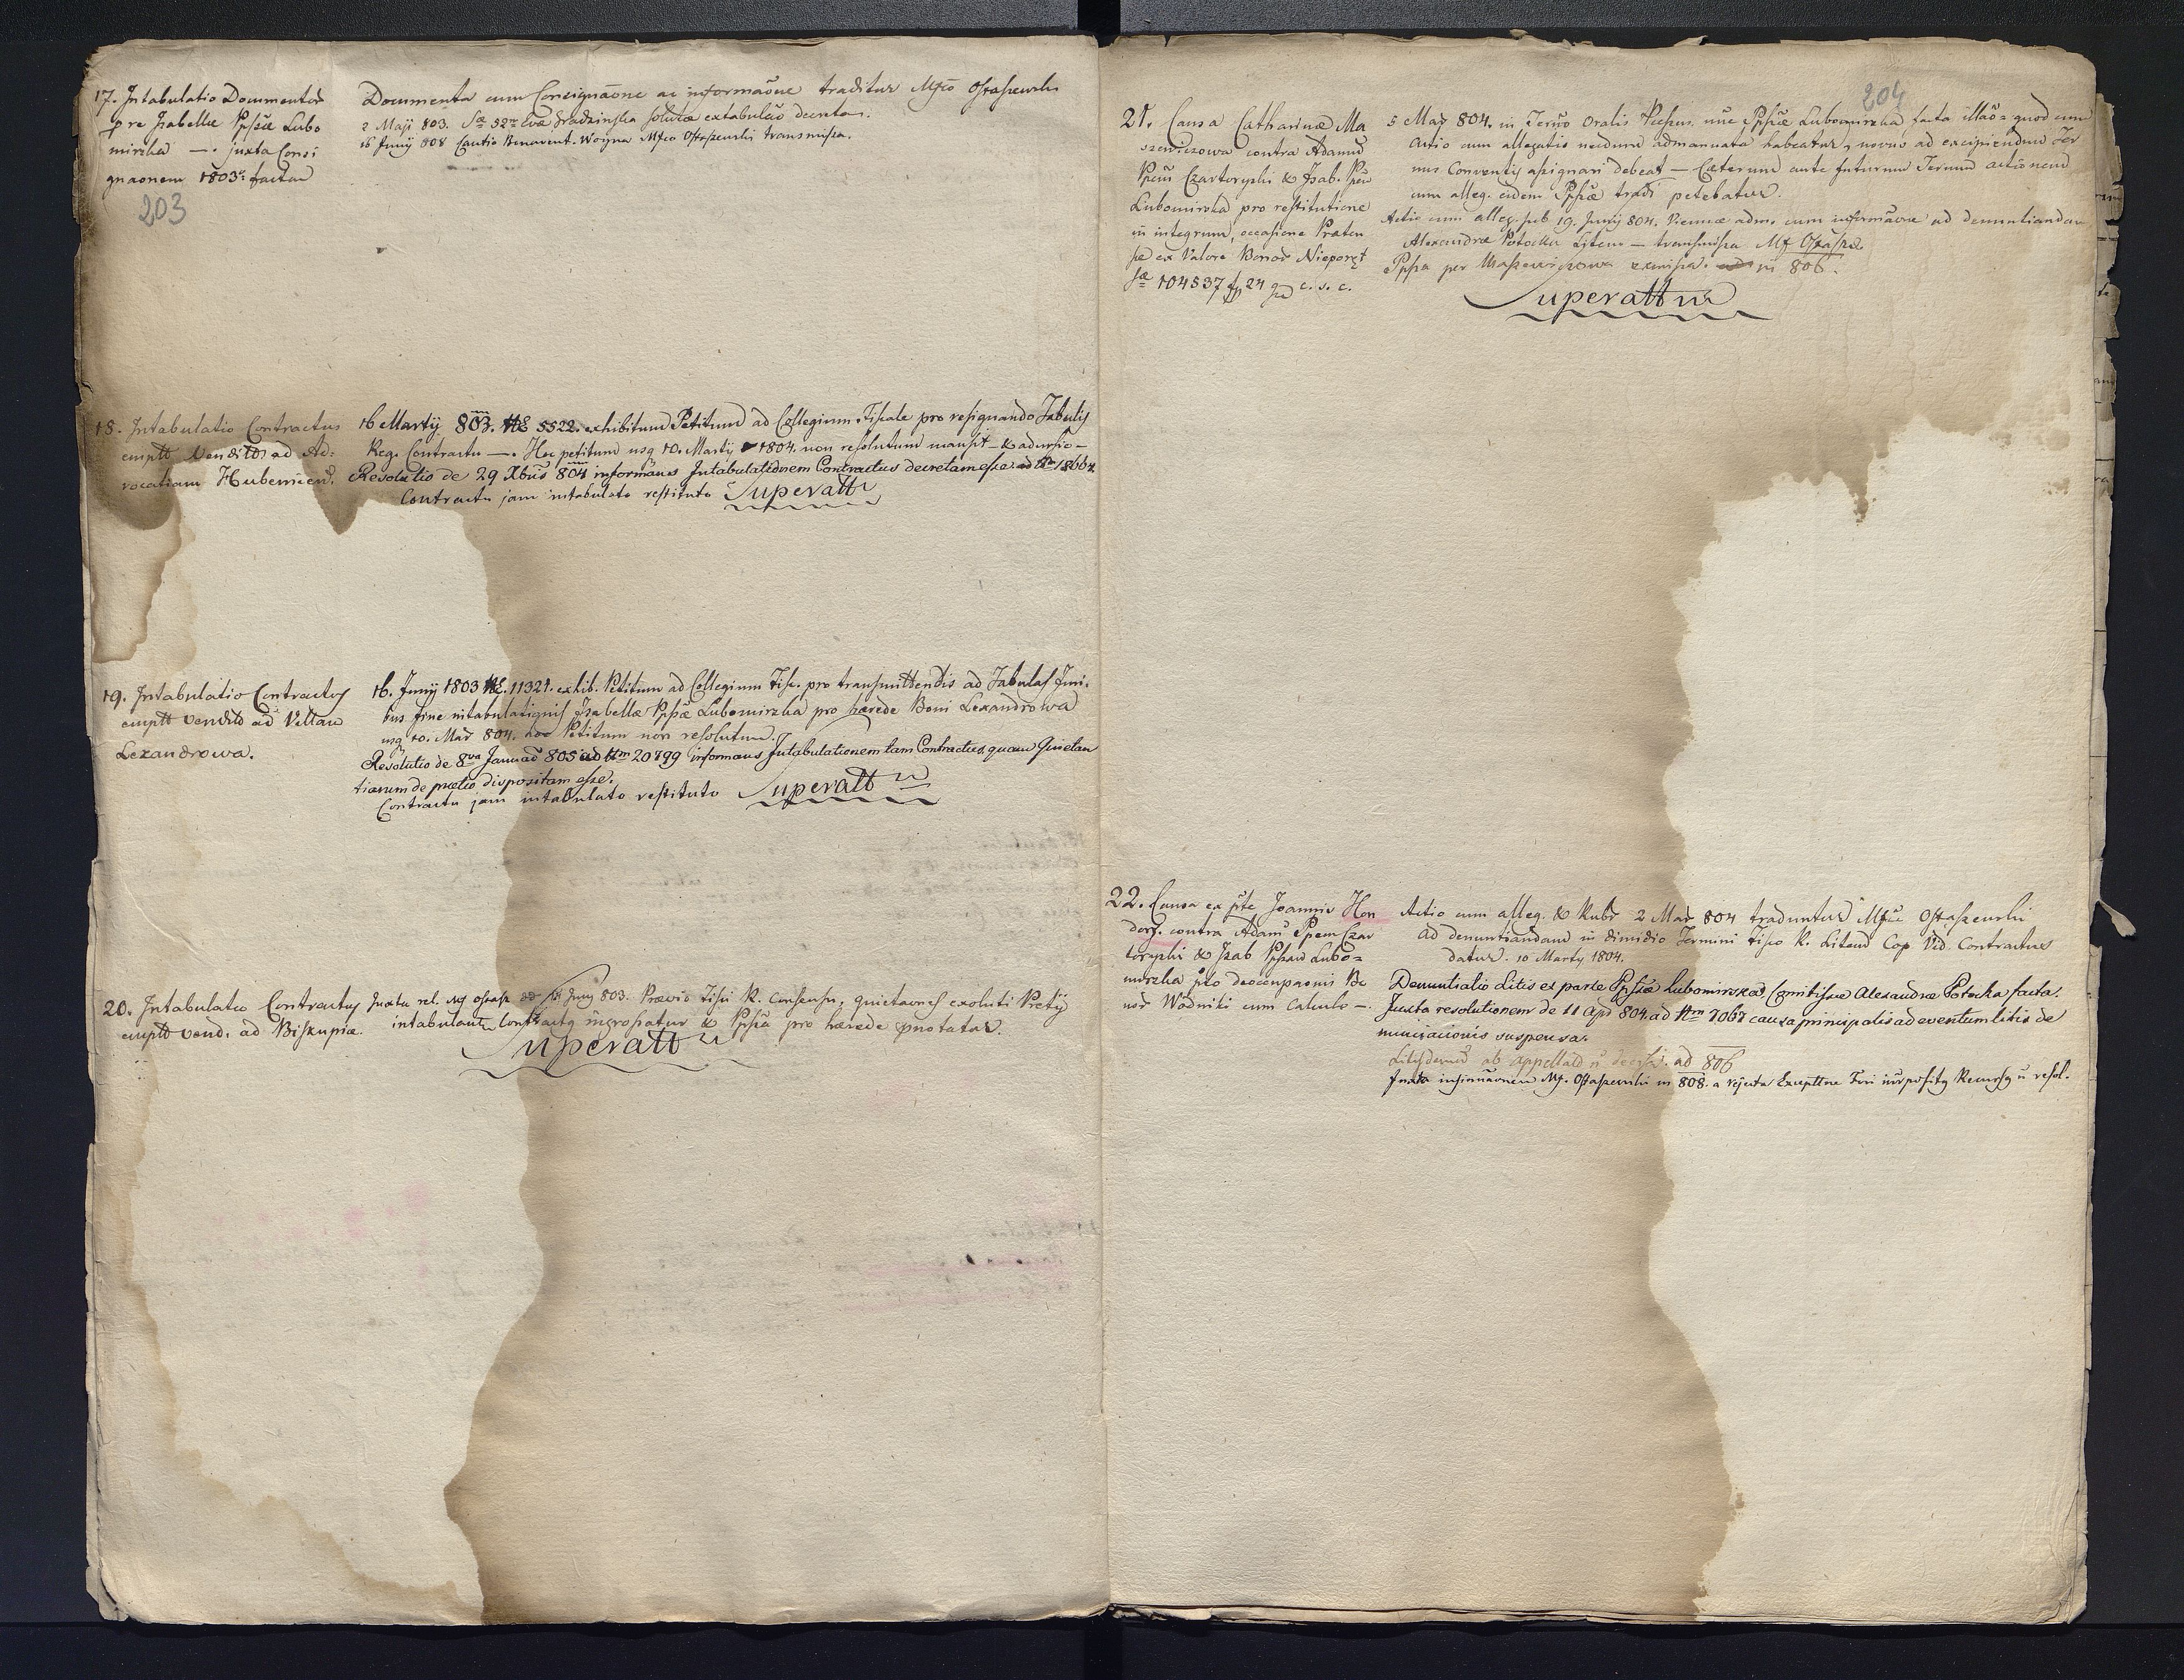 17. Intabulatio Documentor
p re Isabellæ Ppssæ Lubo
mirska —. juxta Consi
gnaonem 1803 factam
203
Documenta cum Consignaōne ac informaōne traditur Mfco Ostaszewski
2 Maji 803. Sæ 52 Eva Gradzinska solutæ extabulaō decreta.
16 Junij 808 Cautio Benavent. Woyna Mfco Ostaszewski transmissa.
18. Intabulatio Contractus
emptt Vendito ad Ad:
vocatiam Hubenicen.
16 Martij 803. NE 5522. exhibitum Petitum ad Collegium Fiscale pro resignando Tabulis
Reg. Contractu —. Hoc petitum usq 10. Martij 1804. non resolutum mansit —
Resolutio de 29 Xbris 804 informans Intabulationem Contractus decretam esse ad Nm 18664.
Contractu jam intabulato restituto Superatt
19. Intabulatio Contractus
emptt vendito ad Villam
Lexandrowa.
16. Junij 1803 NE. 11321. exhib. Petitum ad Collegium Fisc. pro transmittendis ad Tabulas Juri:
bus fine intabulationis Isabellæ Ppssæ Lubomirska pro hærede Boni Lexandrowa
usq 10. Mar 804. hoc Petitum non resolutum.
Resolutio de 8va Januar 805 ad Nm 20799 informans Intabulationem tam Contractus, quam Quietan
tiarum de prætio dispositam esse.
Contractu jam intabulato restituto Superatt
20. Intabulatio Contractus
emptt vend. ad Biskupie.
Juxta rel. Mf Ostasz Junij 803. Prævio Fisci R. consensu, quietaones exoluti Pretij
intabulant Contractq ingrossatur & Ppssa pro hærede pnotatur.
Superatt
204
21. Causa Catharinæ Ma
szewiczowa contra Adamum
Ppem Czartoryski & Isab. Ppem
Lubomirska pro restitutione
in integrum, occasione Præten
sæ ex Valore Bonor Nieporęt
Sæ 104537 fp 24 c. s. c.
5 Mar 804. in Termo Oralis nne Ppssæ Lubomirska facta quod cum
actio cum allegatis nondum admanuata habeatur, novus ad excipiendum Ter
nus Conventis assignari debeat — Cæterum ante futurum Termum actionem
cum alleg. eidem Ppssæ tradi petebatur.
Actio cum alleg. sub 19. Junij 804. Viennæ adm. cum informaōne ad denuntiandam
Alexandræ Potocka Litem — transmissa Mf Ostasze.
Ppssa per Maszewiczowa evuissa. in 806.
Superatt
22. Causa ex pte Joannis Hen
dorf. contra Adam Ppem Czar
toryski & Isab Ppssam Lubo=
mirska pto deoccupaonis Bo
nor Wodniki cum Calculo —.
Actio cum alleg. & Rubr 2 Mar 804 traduntur Mfco Ostaszewski
ad denuntiandam in dimidio Termini Fisco R. Litem Cop. Vid. Contractus
datur. 10 Martij 1804.
Denuntiatio Litis ex parte Ppssæ Lubomirska Comitissæ Alexandræ Potocka facta.
Juxta resolutionem de 11 Apr 804. ad Nm 7067 causa principalis ad eventum litis de
nunciacionis suspensa.
ab appellað ad 806
Juxta insinuaonem Mf. Ostaszewski in 808. a rejecta Exceptne Fori Recurs n resol.